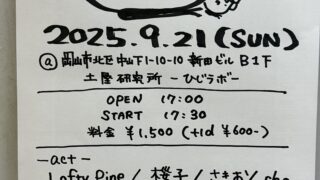 2025.9.21(SUN)
@岡山市北区中山下1-10-10 新田ビル B1F
土屋研究所 ーひじラボー
OPEN 17:00
START 17:30
料金 ¥1,500 (+1d ¥600-)
ーactー
Lofty Pine / 桜子 / さきあソ